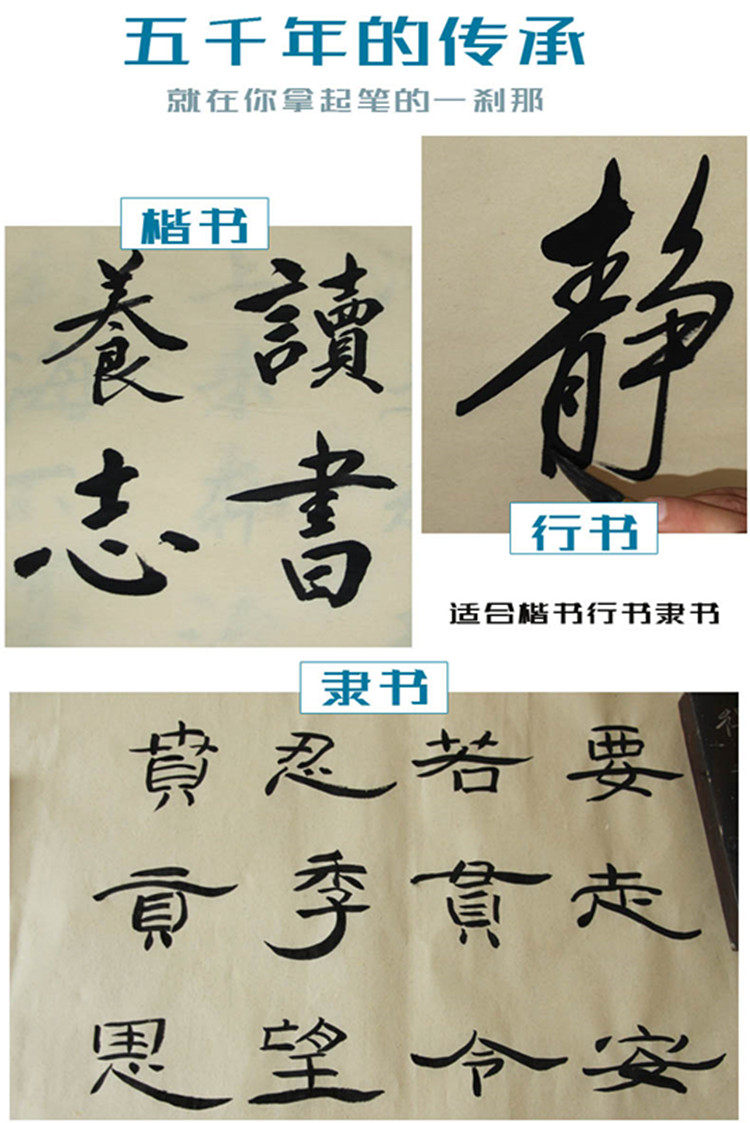 五千年的传承
就在你拿起笔的一刹那
楷书
讀書
養志
静
行书
适合楷书行书隶书
隶书
要走安
若貫令
忍季望
賁貢思